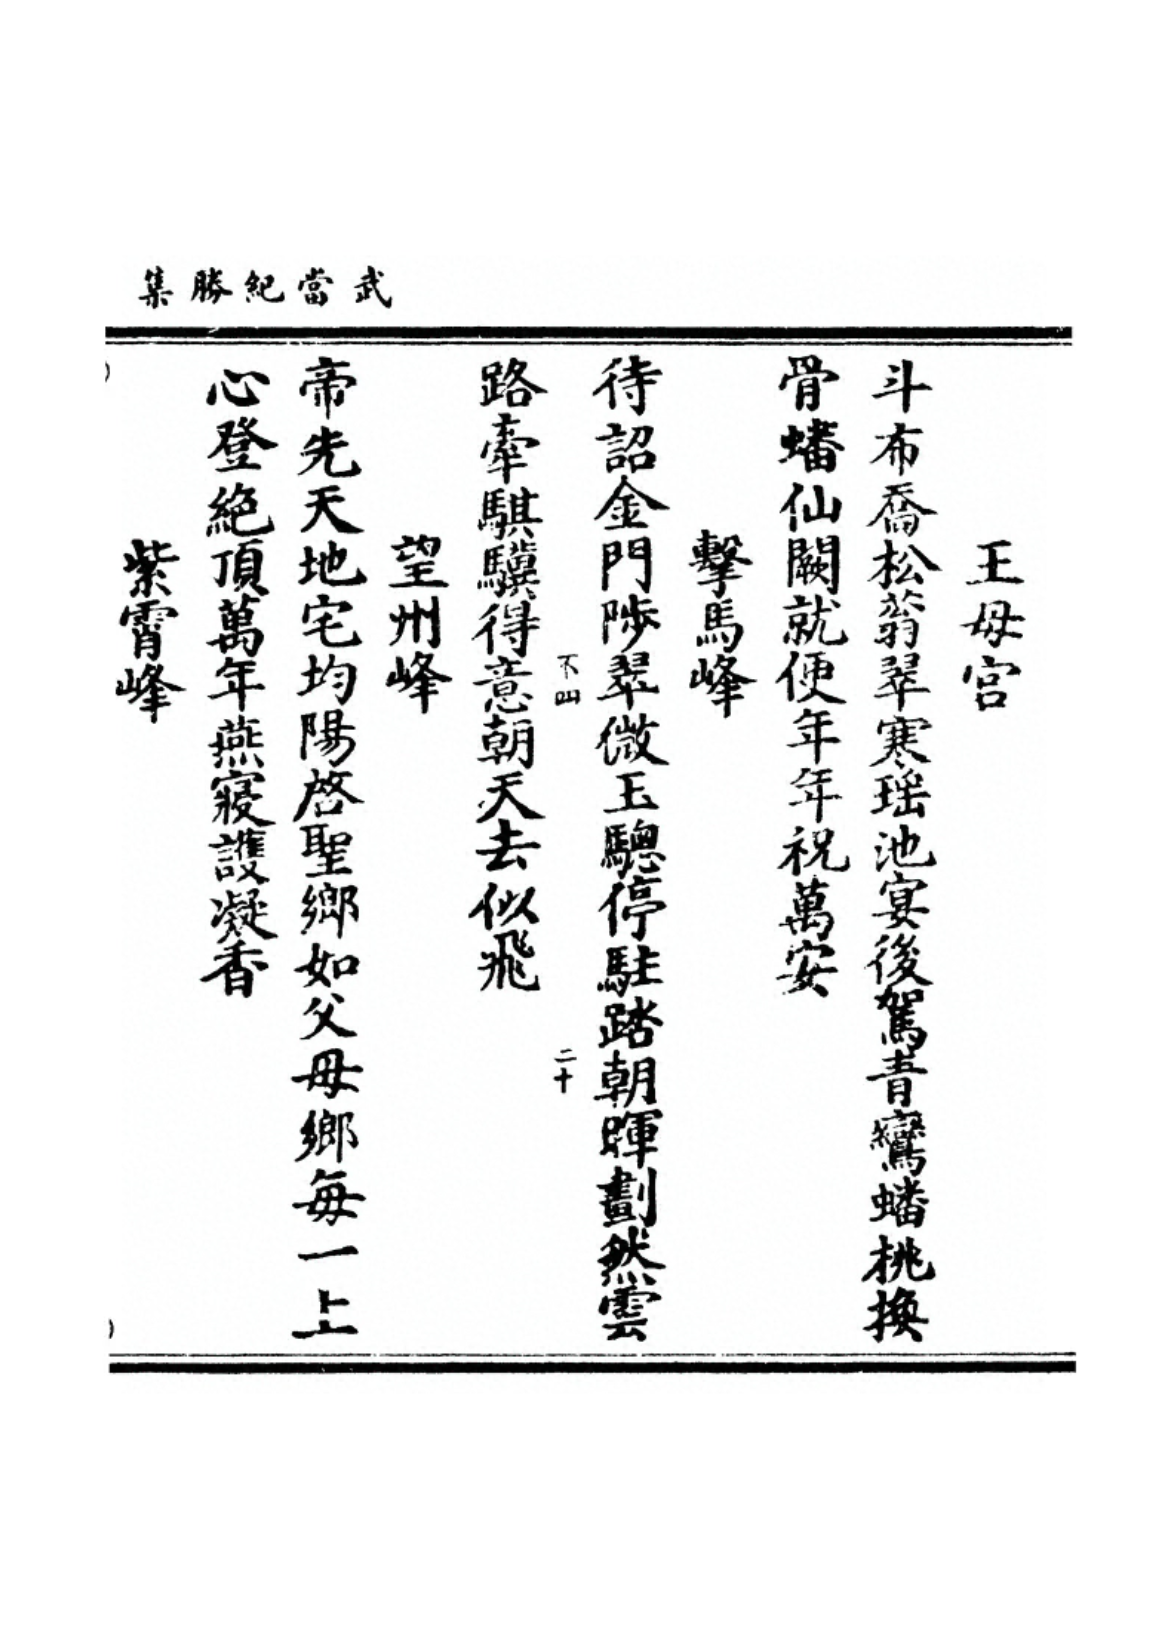 武當紀勝集
王母宮
斗布喬松翁翠寒瑶池宴後駕青鸞蟠桃換
骨蟠仙闕就便年年祝萬安
擊馬峰
待詔金門陟翠微玉驄停駐踏朝暉劃然雲
路牽騏驥得意朝天去似飛
不四
二十
望州峰
帝先天地宅均陽啓聖鄉如父母鄉每一上
心登絶頂萬年燕寢護凝香
紫霄峰